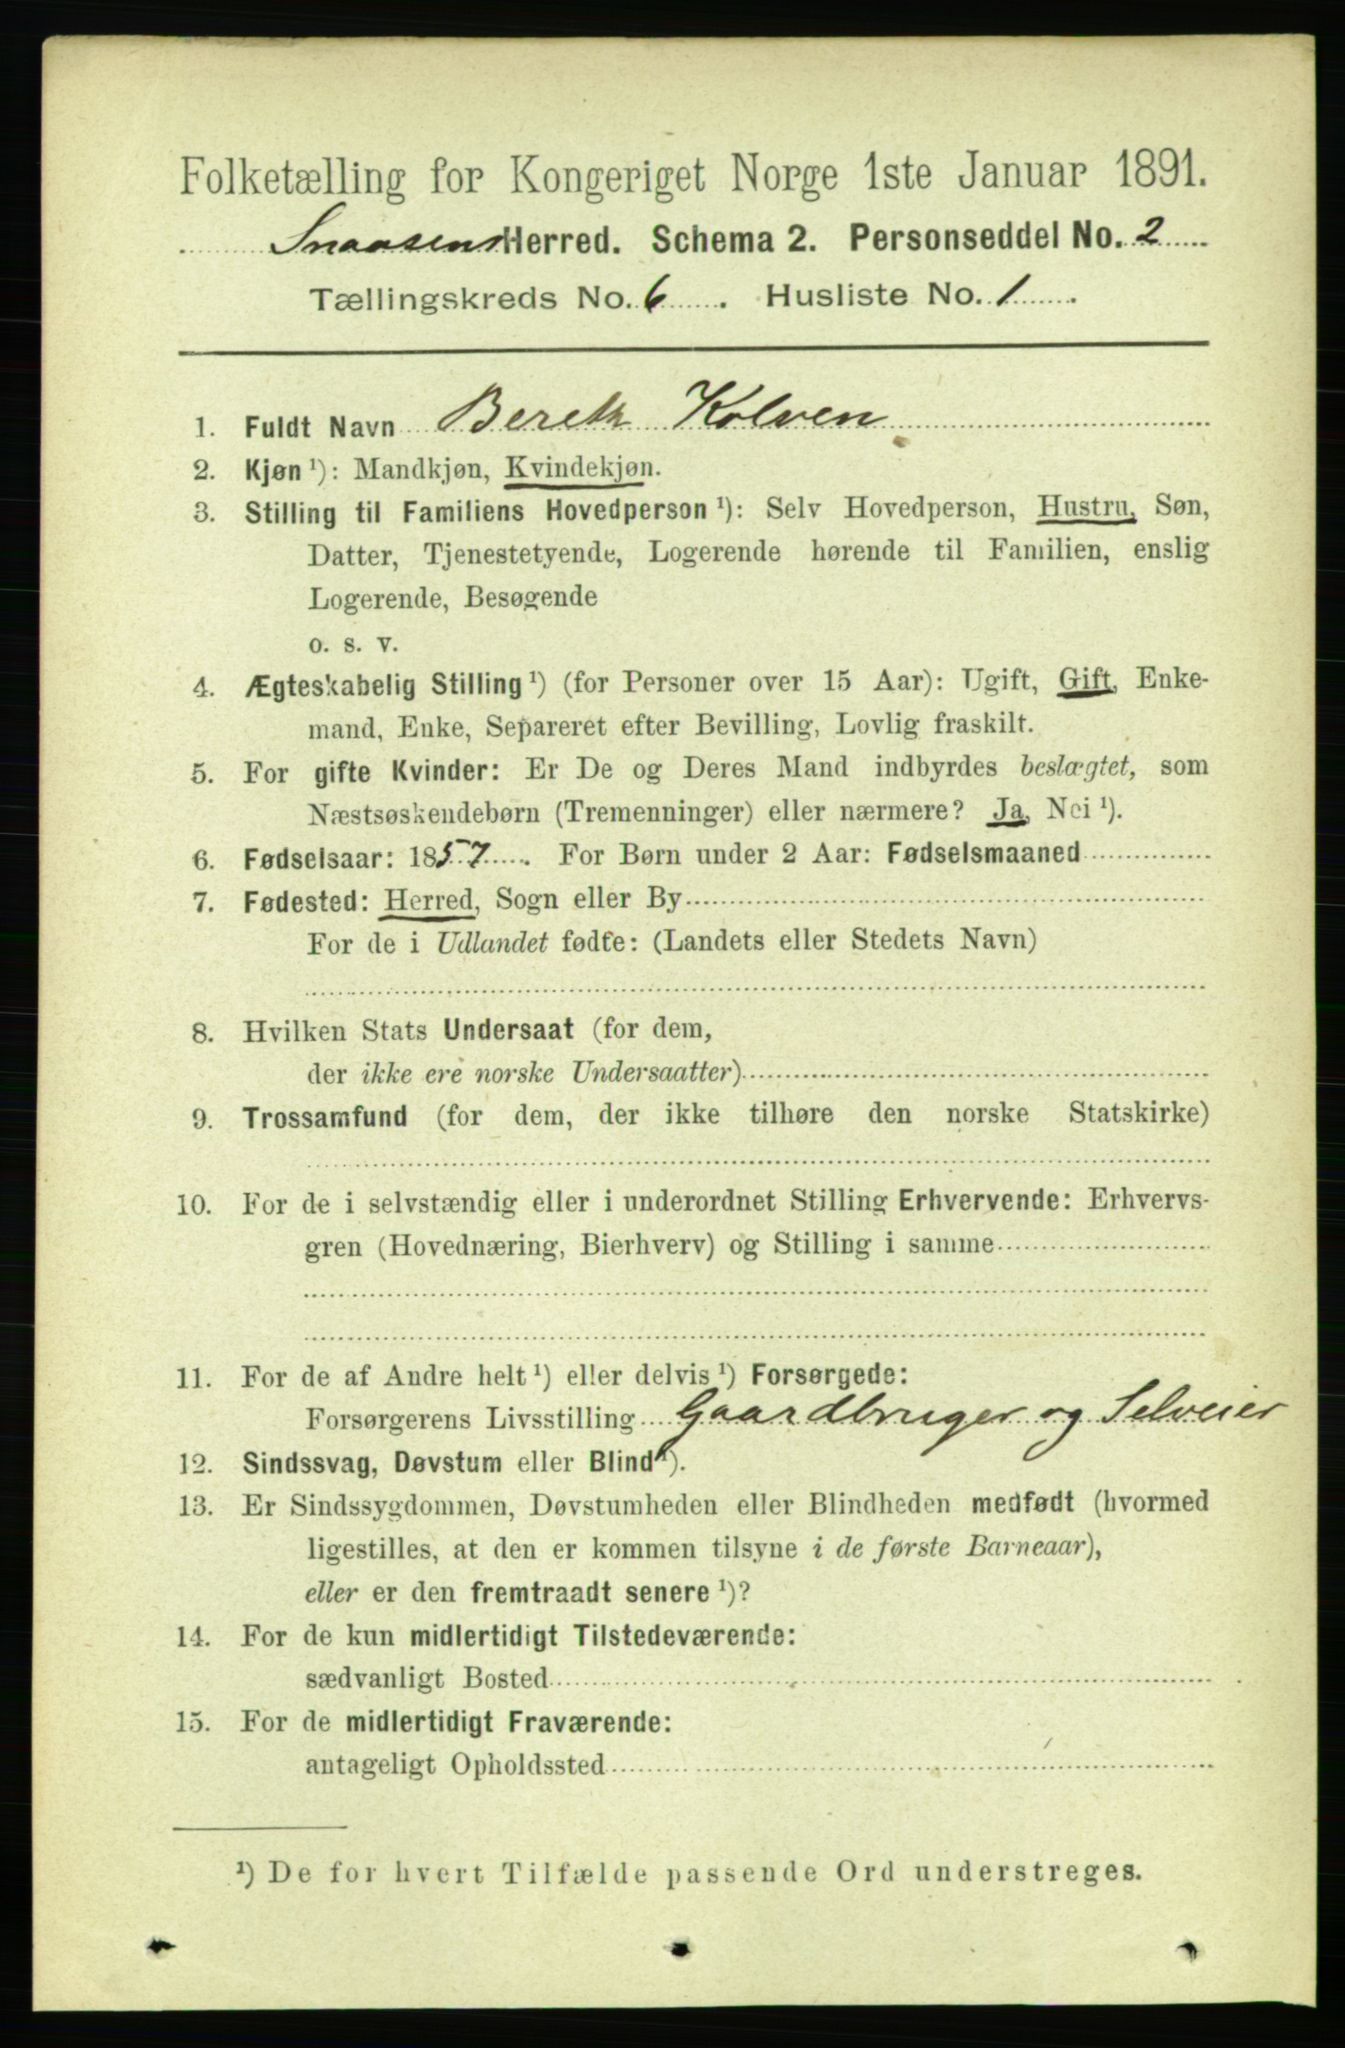 Folketælling for Kongeriget Norge 1ste Januar 1891.
Snaasens Herred. Schema 2. Personseddel No. 2
Tællingskreds No. 6. Husliste No. 1.
1. Fuldt Navn Bereth Kolven
2. Kjøn ¹): Mandkjøn, Kvindekjøn.
3. Stilling til Familiens Hovedperson ¹): Selv Hovedperson, Hustru, Søn,
Datter, Tjenestetyende, Logerende hørende til Familien, enslig
Logerende, Besøgende
o. s. v.
4. Ægteskabelig Stilling ¹) (for Personer over 15 Aar): Ugift, Gift, Enke-
mand, Enke, Separeret efter Bevilling, Lovlig fraskilt.
5. For gifte Kvinder: Er De og Deres Mand indbyrdes beslægtet, som
Næstsøskendebørn (Tremenninger) eller nærmere? Ja, Nei ¹).
6. Fødselsaar: 1857. For Børn under 2 Aar: Fødselsmaaned
7. Fødested: Herred, Sogn eller By
For de i Udlandet fødte: (Landets eller Stedets Navn)
8. Hvilken Stats Undersaat (for dem,
der ikke ere norske Undersaatter)
9. Trossamfund (for dem, der ikke tilhøre den norske Statskirke)
10. For de i selvstændig eller i underordnet Stilling Erhvervende: Erhvervs-
gren (Hovednæring, Bierhverv) og Stilling i samme
11. For de af Andre helt ¹) eller delvis ¹) Forsørgede:
Forsørgerens Livsstilling Gaardbruger og Selveier
12. Sindssvag, Døvstum eller Blind ¹).
13. Er Sindssygdommen, Døvstumheden eller Blindheden medfødt (hvormed
ligestilles, at den er kommen tilsyne i de første Barneaar),
eller er den fremtraadt senere ¹)?
14. For de kun midlertidigt Tilstedeværende:
sædvanligt Bosted
15. For de midlertidigt Fraværende:
antageligt Opholdssted
¹) De for hvert Tilfælde passende Ord understreges.